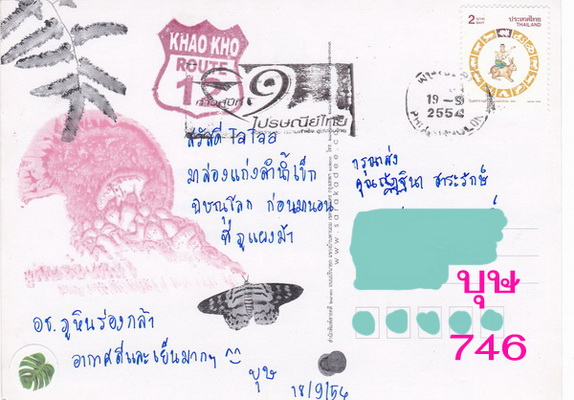 KHAO KHO
ROUTE
12
2 บาท
BAHT
ประเทศไทย
THAILAND
19
2554
ไปรษณีย์ไทย
สวัสดี TaTaa
มาล่องแก่งลำน้ำเข็ก
ก่อนมานอน
ที่ภูแผงม้า
กรุณาส่ง
สาระรักษ์
www.sarakadee.com
บุษ
746
อช. ภูหินร่องกล้า
อากาศดีและเย็นมากๆ
บุษ
18/9/54